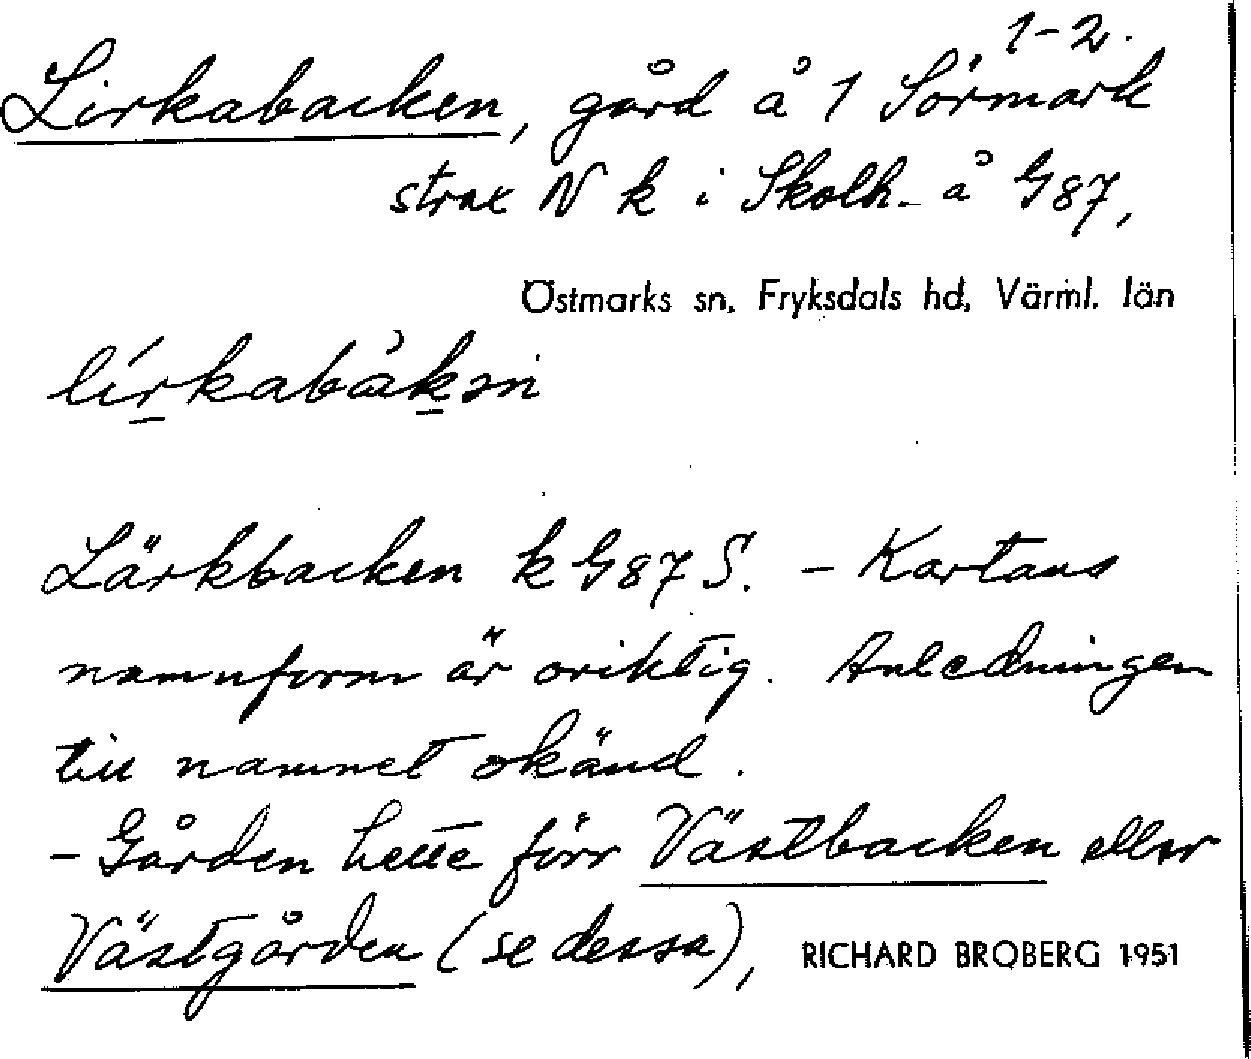 1-2.
Lirkabacken, gård å 1 Sörmark
strax N k i Skolh. å G87,
Östmarks sn, Fryksdals hd, Värml. län
lírkabàkən
Lärkbacken k G87 S. - Kartans
namnform är oriktig. Anledningen
till namnet okänd.
- Gården hette förr Västbacken eller
Västgården (se dessa),
RICHARD BROBERG 1951